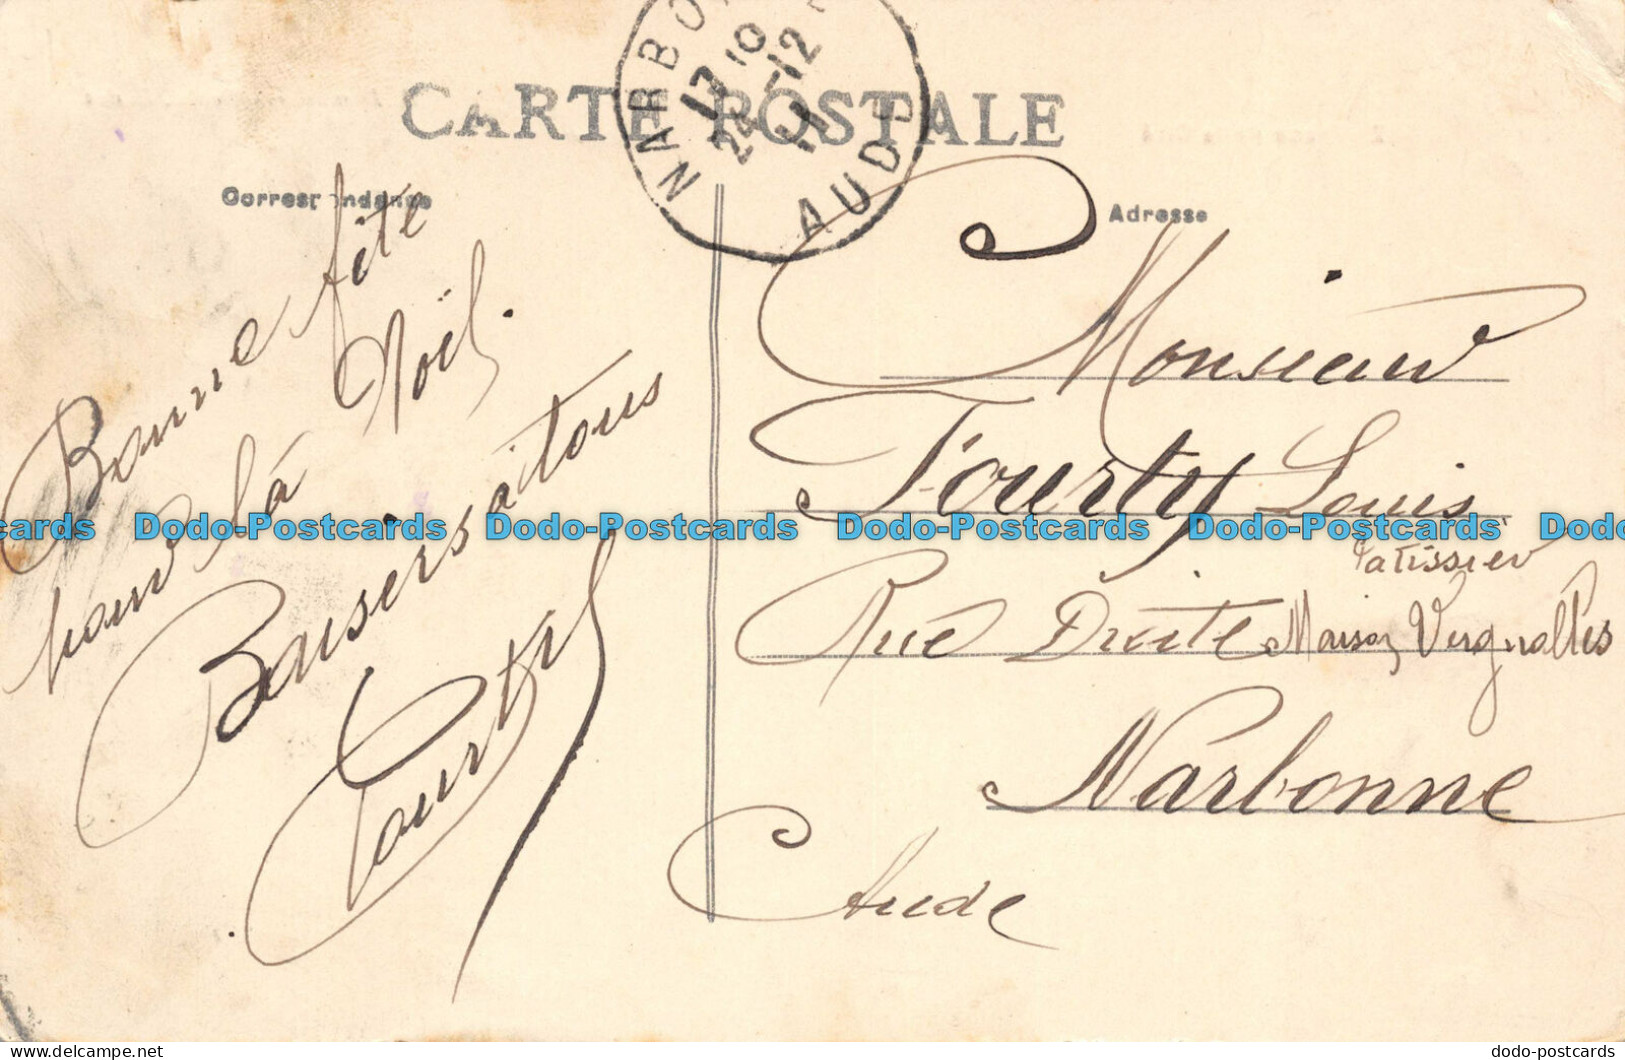 CARTE POSTALE
NARBO
17 10
24 -12
11
AUDE
Correspondance
Adresse
Bonne fête
pour la
Noël.
Baisers à tous
Monsieur
Fourty Louis
Patissier
Rue Droite Maison
Narbonne
Aude
Dodo-Postcards Dodo-Postcards Dodo-Postcards Dodo-Postcards
delcampe.net
dodo-postcards